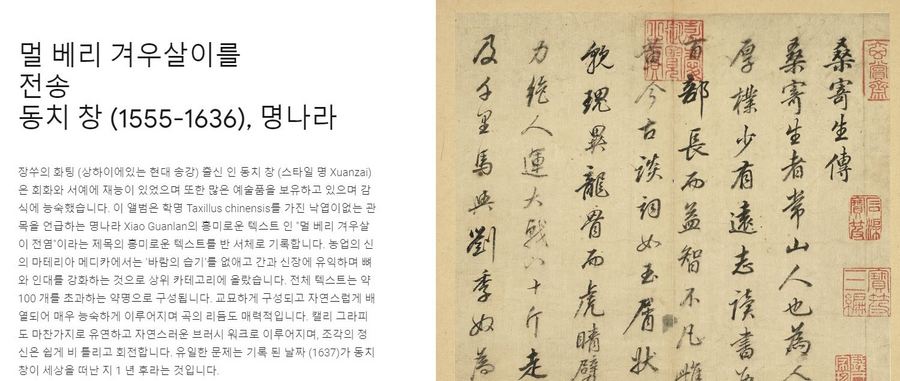 멀 베리 겨우살이를
전송
동치 창 (1555-1636), 명나라
장쑤의 화팅 (상하이에있는 현대 송강) 출신 인 동치 창 (스타일 명 Xuanzai)
은 회화와 서예에 재능이 있었으며 또한 많은 예술품을 보유하고 있으며 감
식에 능숙했습니다. 이 앨범은 학명 Taxillus chinensis를 가진 낙엽이없는 관
목을 언급하는 명나라 Xiao Guanlan의 흥미로운 텍스트 인 "멀 베리 겨우살
이 전염"이라는 제목의 흥미로운 텍스트를 반 서체로 기록합니다. 농업의 신
의 마테리아 메디카에서는 '바람의 습기'를 없애고 간과 신장에 유익하며 뼈
와 인대를 강화하는 것으로 상위 카테고리에 올랐습니다. 전체 텍스트는 약
100 개를 초과하는 약명으로 구성됩니다. 교묘하게 구성되고 자연스럽게 배
열되어 매우 능숙하게 이루어지며 곡의 리듬도 매력적입니다. 캘리 그라피
도 마찬가지로 유연하고 자연스러운 브러시 워크로 이루어지며, 조각의 정
신은 쉽게 비 틀리고 회전합니다. 유일한 문제는 기록 된 날짜 (1637)가 동치
창이 세상을 떠난 지 1 년 후라는 것입니다.
桑寄生傳
桑寄生者常山人也為人
厚樸少有遠志讀書
百部長而益智不凡雌
黃今古談詞如玉屑狀
貌瑰異龍骨而虎睛臂
力絕人運大戟八十斤走
及千里馬與劉季奴為
玄賞齋
石渠寶笈
寶笈三編